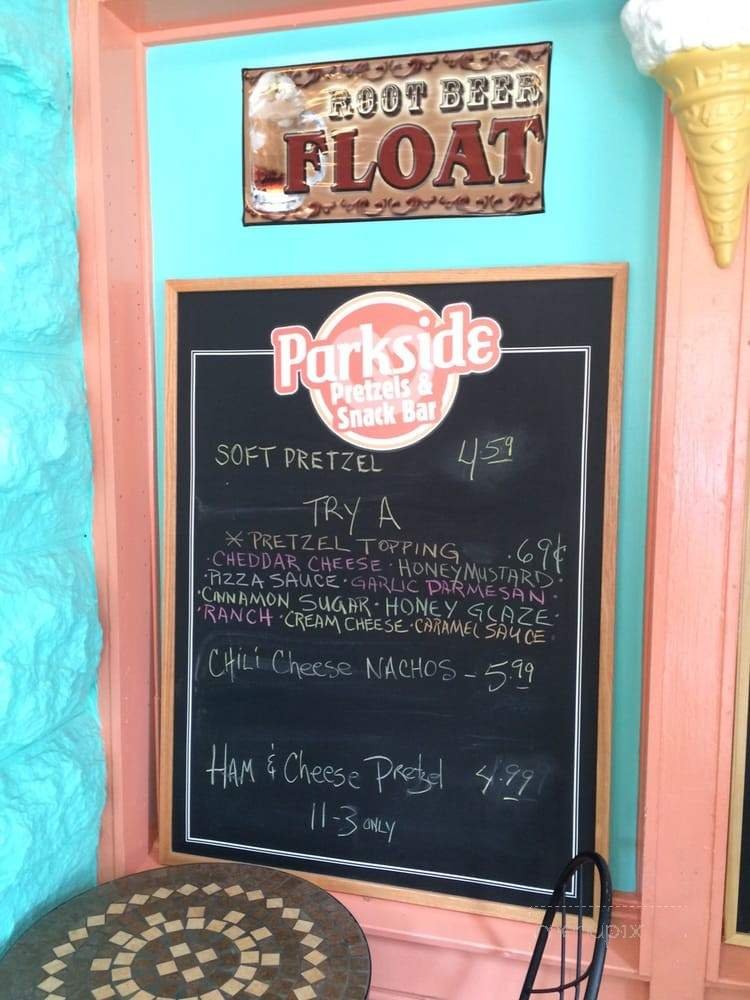 ROOT BEER
FLOAT
Parkside
Pretzels &
Snack Bar
SOFT PRETZEL 4.59
TRY A
* PRETZEL TOPPING .69¢
· CHEDDAR CHEESE · HONEY MUSTARD ·
· PIZZA SAUCE · GARLIC PARMESAN ·
· CINNAMON SUGAR · HONEY GLAZE ·
· RANCH · CREAM CHEESE · CARAMEL SAUCE
CHILI Cheese NACHOS - 5.99
HAM & Cheese Pretzel 4.99
11-3 ONLY
menupix